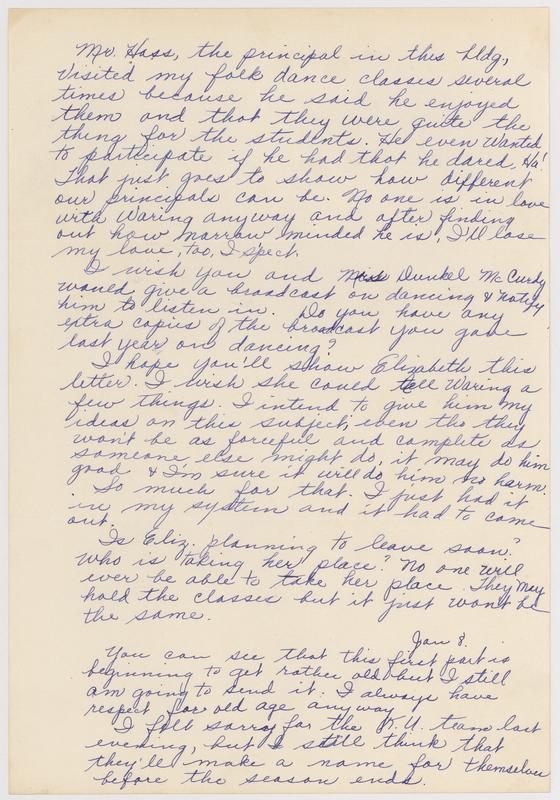 Mr. Hass, the principal in this bldg.,
visited my folk dance classes several
times because he said he enjoyed
them and that they were quite the
thing for the students. He even wanted
to participate if he had that he dared, Ha!
That just goes to show how different
our principals can be. No one is in love
with Waring anyway and after finding
out how narrow minded he is, I'll lose
my love, too, I spect.
I wish you and Miss Dunkel McCurdy
would give a broadcast on dancing & notify
him to listen in. Do you have any
extra copies of the broadcast you gave
last year on dancing?
I hope you'll show Elizabeth this
letter. I wish she could tell Waring a
few things. I intend to give him my
ideas on this subject, even tho they
won't be as forceful and complete as
someone else might do, it may do him
good & I'm sure it will do him no harm.
So much for that. I just had it
in my system and it had to come
out.
Is Eliz. planning to leave soon?
Who is taking her place? No one will
ever be able to take her place. They may
hold the classes but it just won't be
the same.
Jan 8.
You can see that this first part is
beginning to get rather old but I still
am going to send it. I always have
respect for old age anyway.
I felt sorry for the K.U. team last
evening, but I still think that
they'll make a name for themselves
before the season ends.